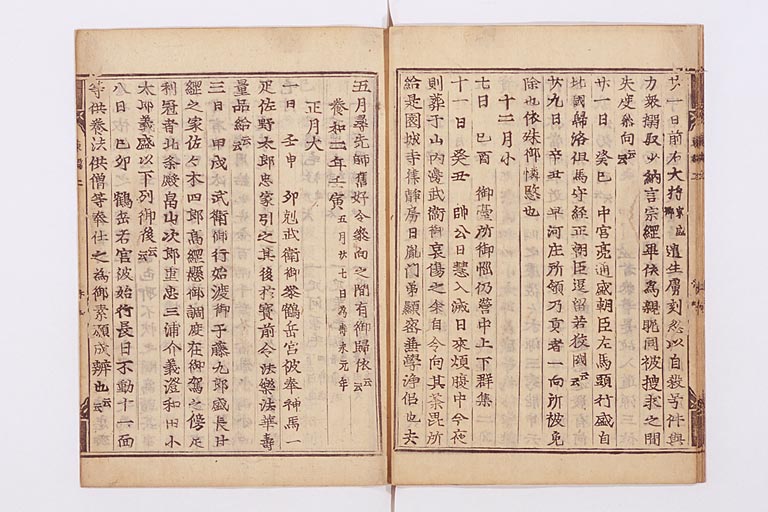 廿一日前右大將宗盛卿遣生虜刻忽以自敘等件與
力衆撰取少納言宗經平為親眤同被搜求之間
失度參向云云
廿一日 癸巳 中宮亮通盛朝臣左馬頭行盛自
北國歸洛但馬守經正朝臣逗留若狹國云云
廿九日 辛丑 早河庄所領乃貢者一向所被免
除也依殊御憐愍也
十二月小
七日 己酉 御臺所御惱仍營中上下群集
十一日 癸丑 帥公日慧入滅日來煩腹中今夜
則葬于山內邊武衛御哀傷之余自令向其荼毘所
給是園城寺律靜房日胤門弟顯密兼學淨侶也去
五月尋先師舊好令參向之間有御歸依云云
養和二年壬寅 五月廿七日為壽永元年
正月大
一日 壬申 卯剋武衛御參鶴岳宮被奉神馬一
疋佐野太郎忠家引之其後於寶前令法樂法華壽
量品給云云
三日 甲戌 武衛御行始渡御于藤九郎盛長甘
繩之家佐々木四郎高綱懸御調度在御駕之傍足
利冠者北条殿畠山次郎重忠三浦介義澄和田小
太郎義盛以下列御後云云
八日 己卯 鶴岳若宮被始行長日不動十一面
等供養法供僧等奉仕之為御素願成辨也云云